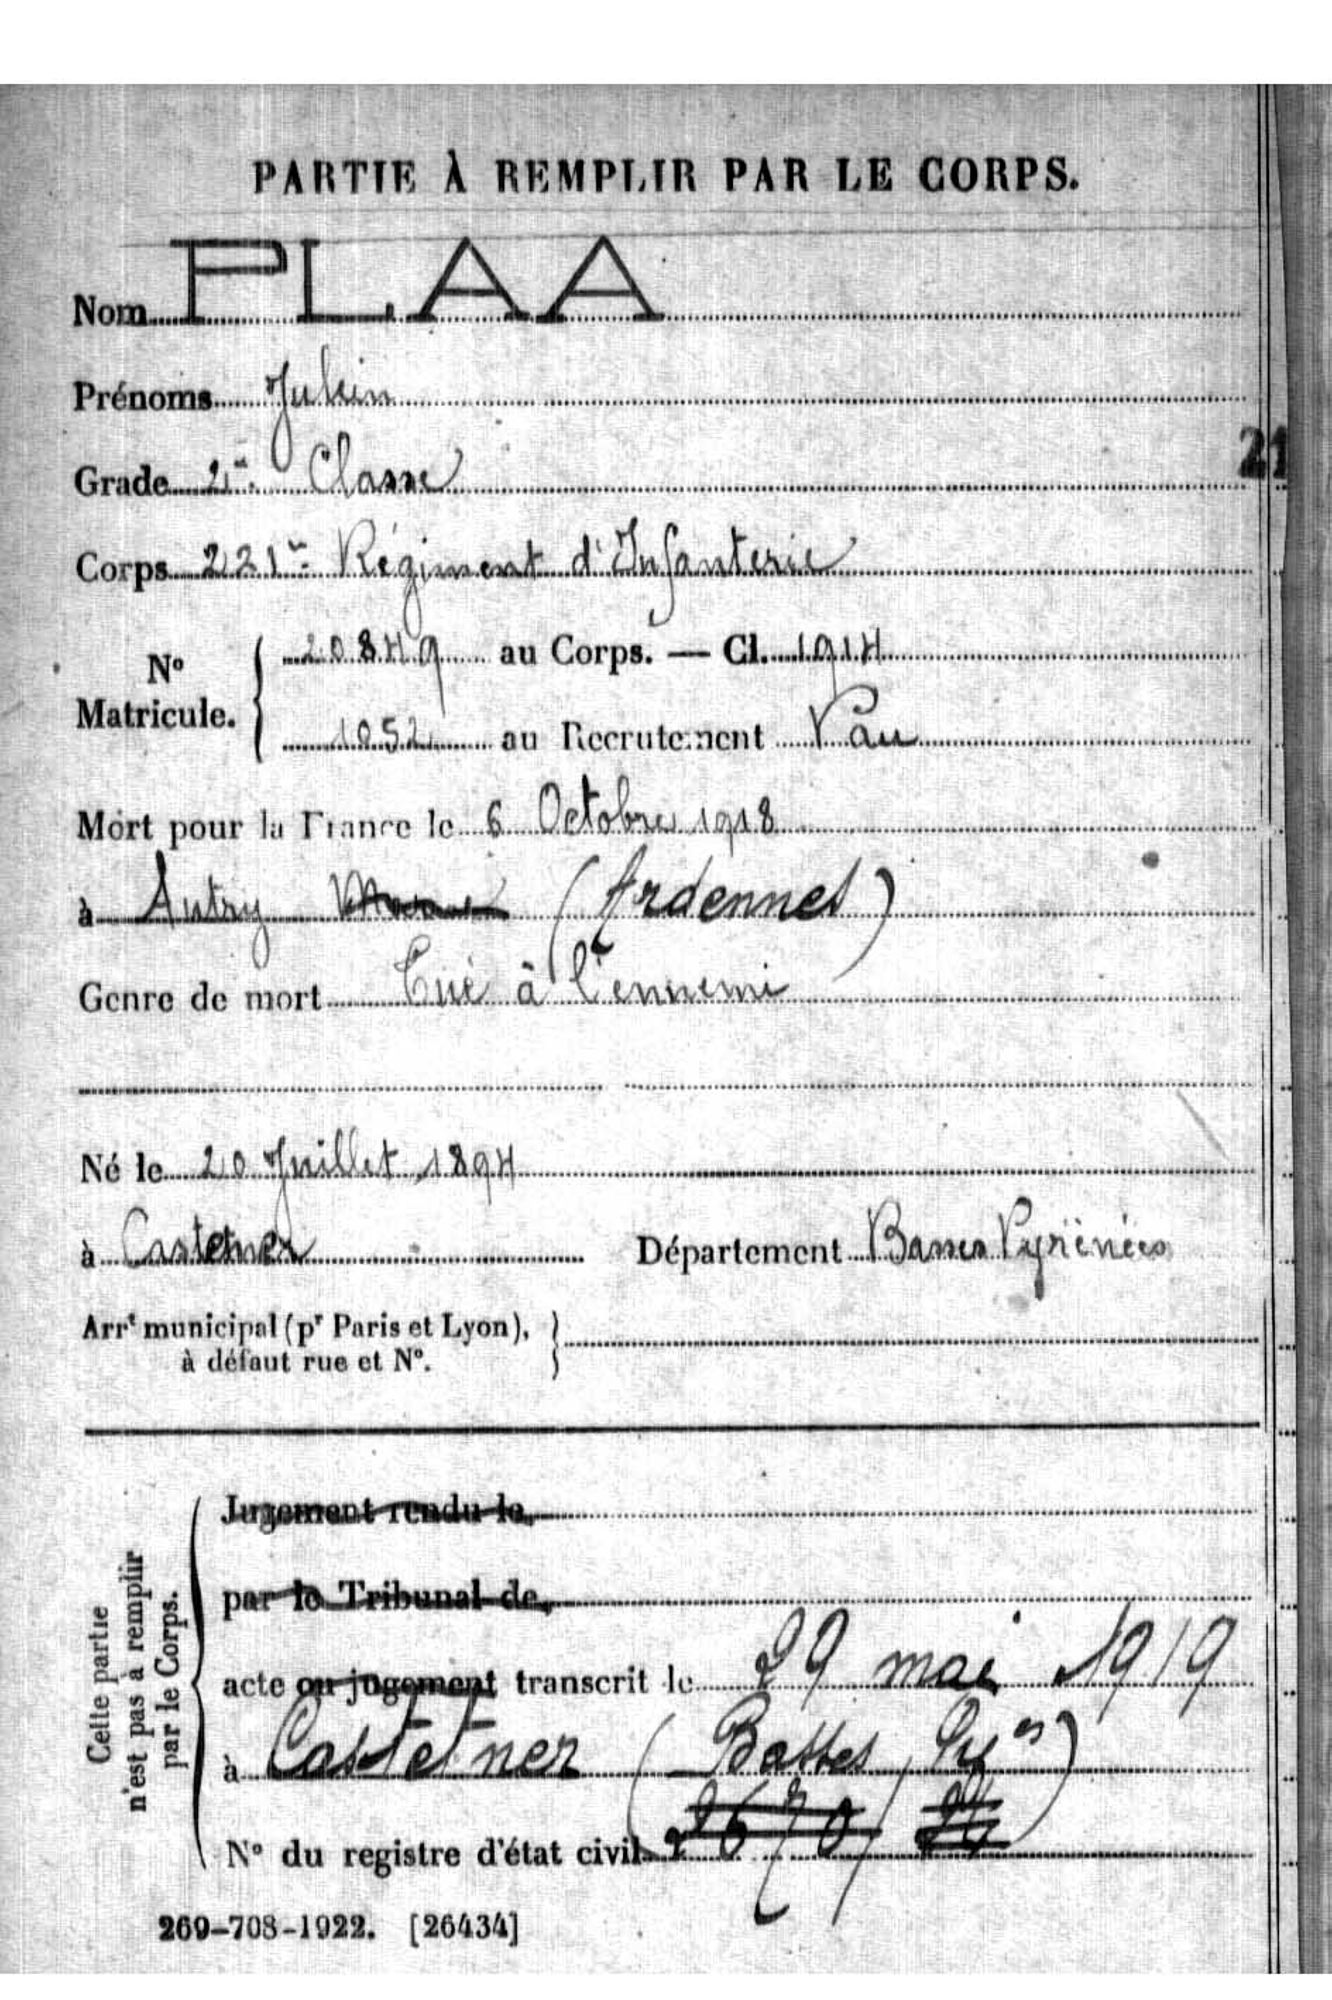 PARTIE À REMPLIR PAR LE CORPS.
Nom PLAA
Prénoms Julien
Grade 2e Classe
21
Corps 221e Régiment d'Infanterie
N° Matricule. 20849 au Corps. — Cl. 1914
1052 au Recrutement Pau
Mort pour la France le 6 Octobre 1918
à Autry (Ardennes)
Genre de mort Tué à l'ennemi
Né le 20 Juillet 1894
à Castetner Département Basses Pyrénées
Arrt municipal (pr Paris et Lyon),
à défaut rue et N°.
Cette partie
n'est pas à remplir
par le Corps.
Jugement rendu le
par le Tribunal de
acte ou jugement transcrit le 29 mai 1919
à Castetner (Basses Pyes)
N° du registre d'état civil 2670/
269-708-1922. [26434]